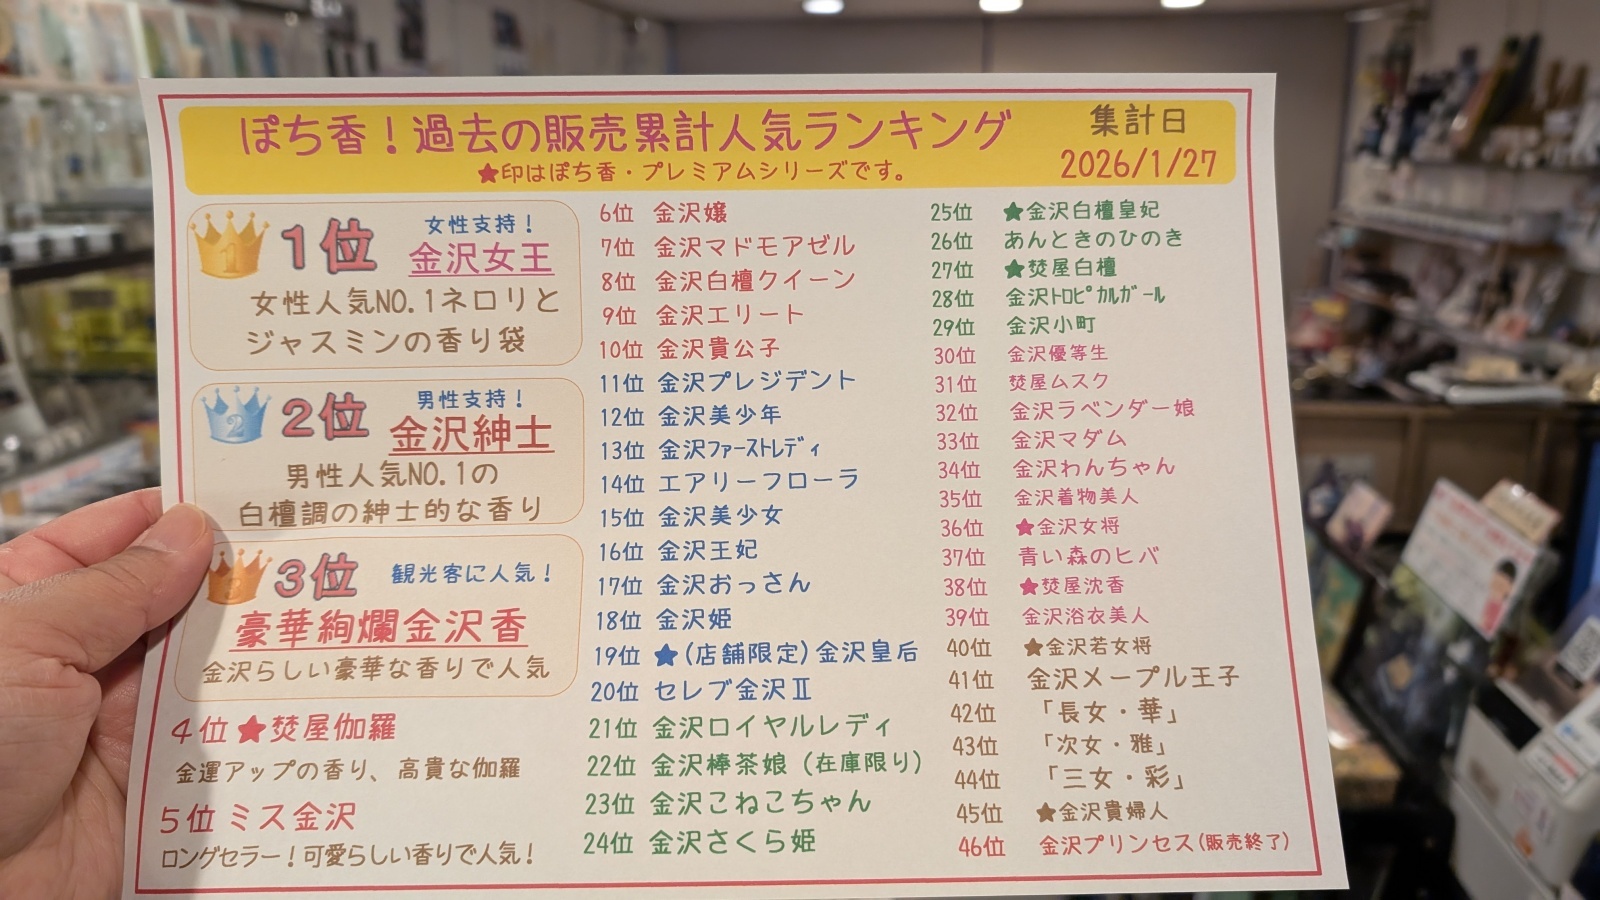 ぽち香！過去の販売累計人気ランキング
★印はぽち香・プレミアムシリーズです。
集計日
2026/1/27
1
1位
女性支持！
金沢女王
女性人気NO.1ネロリと
ジャスミンの香り袋
2
2位
男性支持！
金沢紳士
男性人気NO.1の
白檀調の紳士的な香り
3位
観光客に人気！
豪華絢爛金沢香
金沢らしい豪華な香りで人気
4位 ★焚屋伽羅
金運アップの香り、高貴な伽羅
5位 ミス金沢
ロングセラー！可愛らしい香りで人気！
6位 金沢嬢
7位 金沢マドモアゼル
8位 金沢白檀クイーン
9位 金沢エリート
10位 金沢貴公子
11位 金沢プレジデント
12位 金沢美少年
13位 金沢ﾌｧｰｽﾄﾚﾃﾞｨ
14位 エアリーフローラ
15位 金沢美少女
16位 金沢王妃
17位 金沢おっさん
18位 金沢姫
19位 ★(店舗限定)金沢皇后
20位 セレブ金沢Ⅱ
21位 金沢ロイヤルレディ
22位 金沢棒茶娘（在庫限り）
23位 金沢こねこちゃん
24位 金沢さくら姫
25位 ★金沢白檀皇妃
26位 あんときのひのき
27位 ★焚屋白檀
28位 金沢ﾄﾛﾋﾟｶﾙｶﾞｰﾙ
29位 金沢小町
30位 金沢優等生
31位 焚屋ムスク
32位 金沢ラベンダー娘
33位 金沢マダム
34位 金沢わんちゃん
35位 金沢着物美人
36位 ★金沢女将
37位 青い森のヒバ
38位 ★焚屋沈香
39位 金沢浴衣美人
40位 ★金沢若女将
41位 金沢メープル王子
42位 「長女・華」
43位 「次女・雅」
44位 「三女・彩」
45位 ★金沢貴婦人
46位 金沢プリンセス(販売終了)